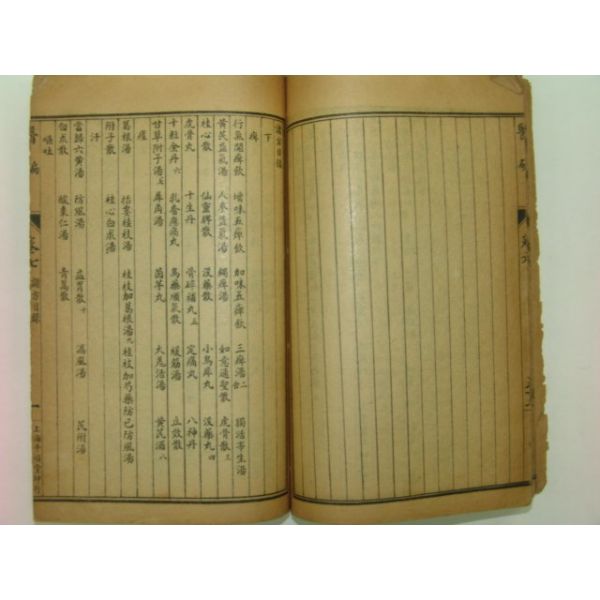 下
痺
行氣開痺飲 增味五痺飲 加味五痺飲 三痺湯二 獨活寄生湯
黃芪益氣湯 人參益氣湯 蠲痺湯 如意通聖散 虎骨散三
桂心散 仙靈脾散 沒藥散 小烏犀丸 沒藥丸四
虎骨丸 十生丹 骨碎補丸五 定痛丸 八神丹
十粒金丹六 乳香應痛丸 烏藥順氣散 緩筋湯 立效散
甘草附子湯七 犀角湯 茵芋丸 大羌活湯 黃芪酒八
痙
葛根湯 括蔞桂枝湯 桂枝加葛根湯九 桂枝加芍藥防己防風湯
附子散 桂心白朮湯
汗
當歸六黃湯 防風湯 益胃散十 漏風湯 芪附湯
白朮散 酸棗仁湯 青蒿散
嘔吐
卷七
一